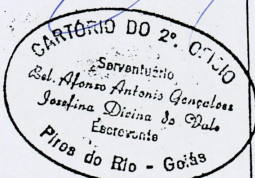 CARTÓRIO DO 2º. OFÍCIO
Serventuário
Bel. Afonso Antonio Gonçalves
Josefina Divina do Vale
Escrevente
Pires do Rio - Goiás